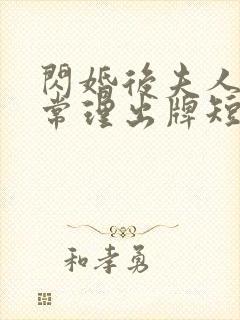 閃婚後夫人
常理出牌短
和孝勇